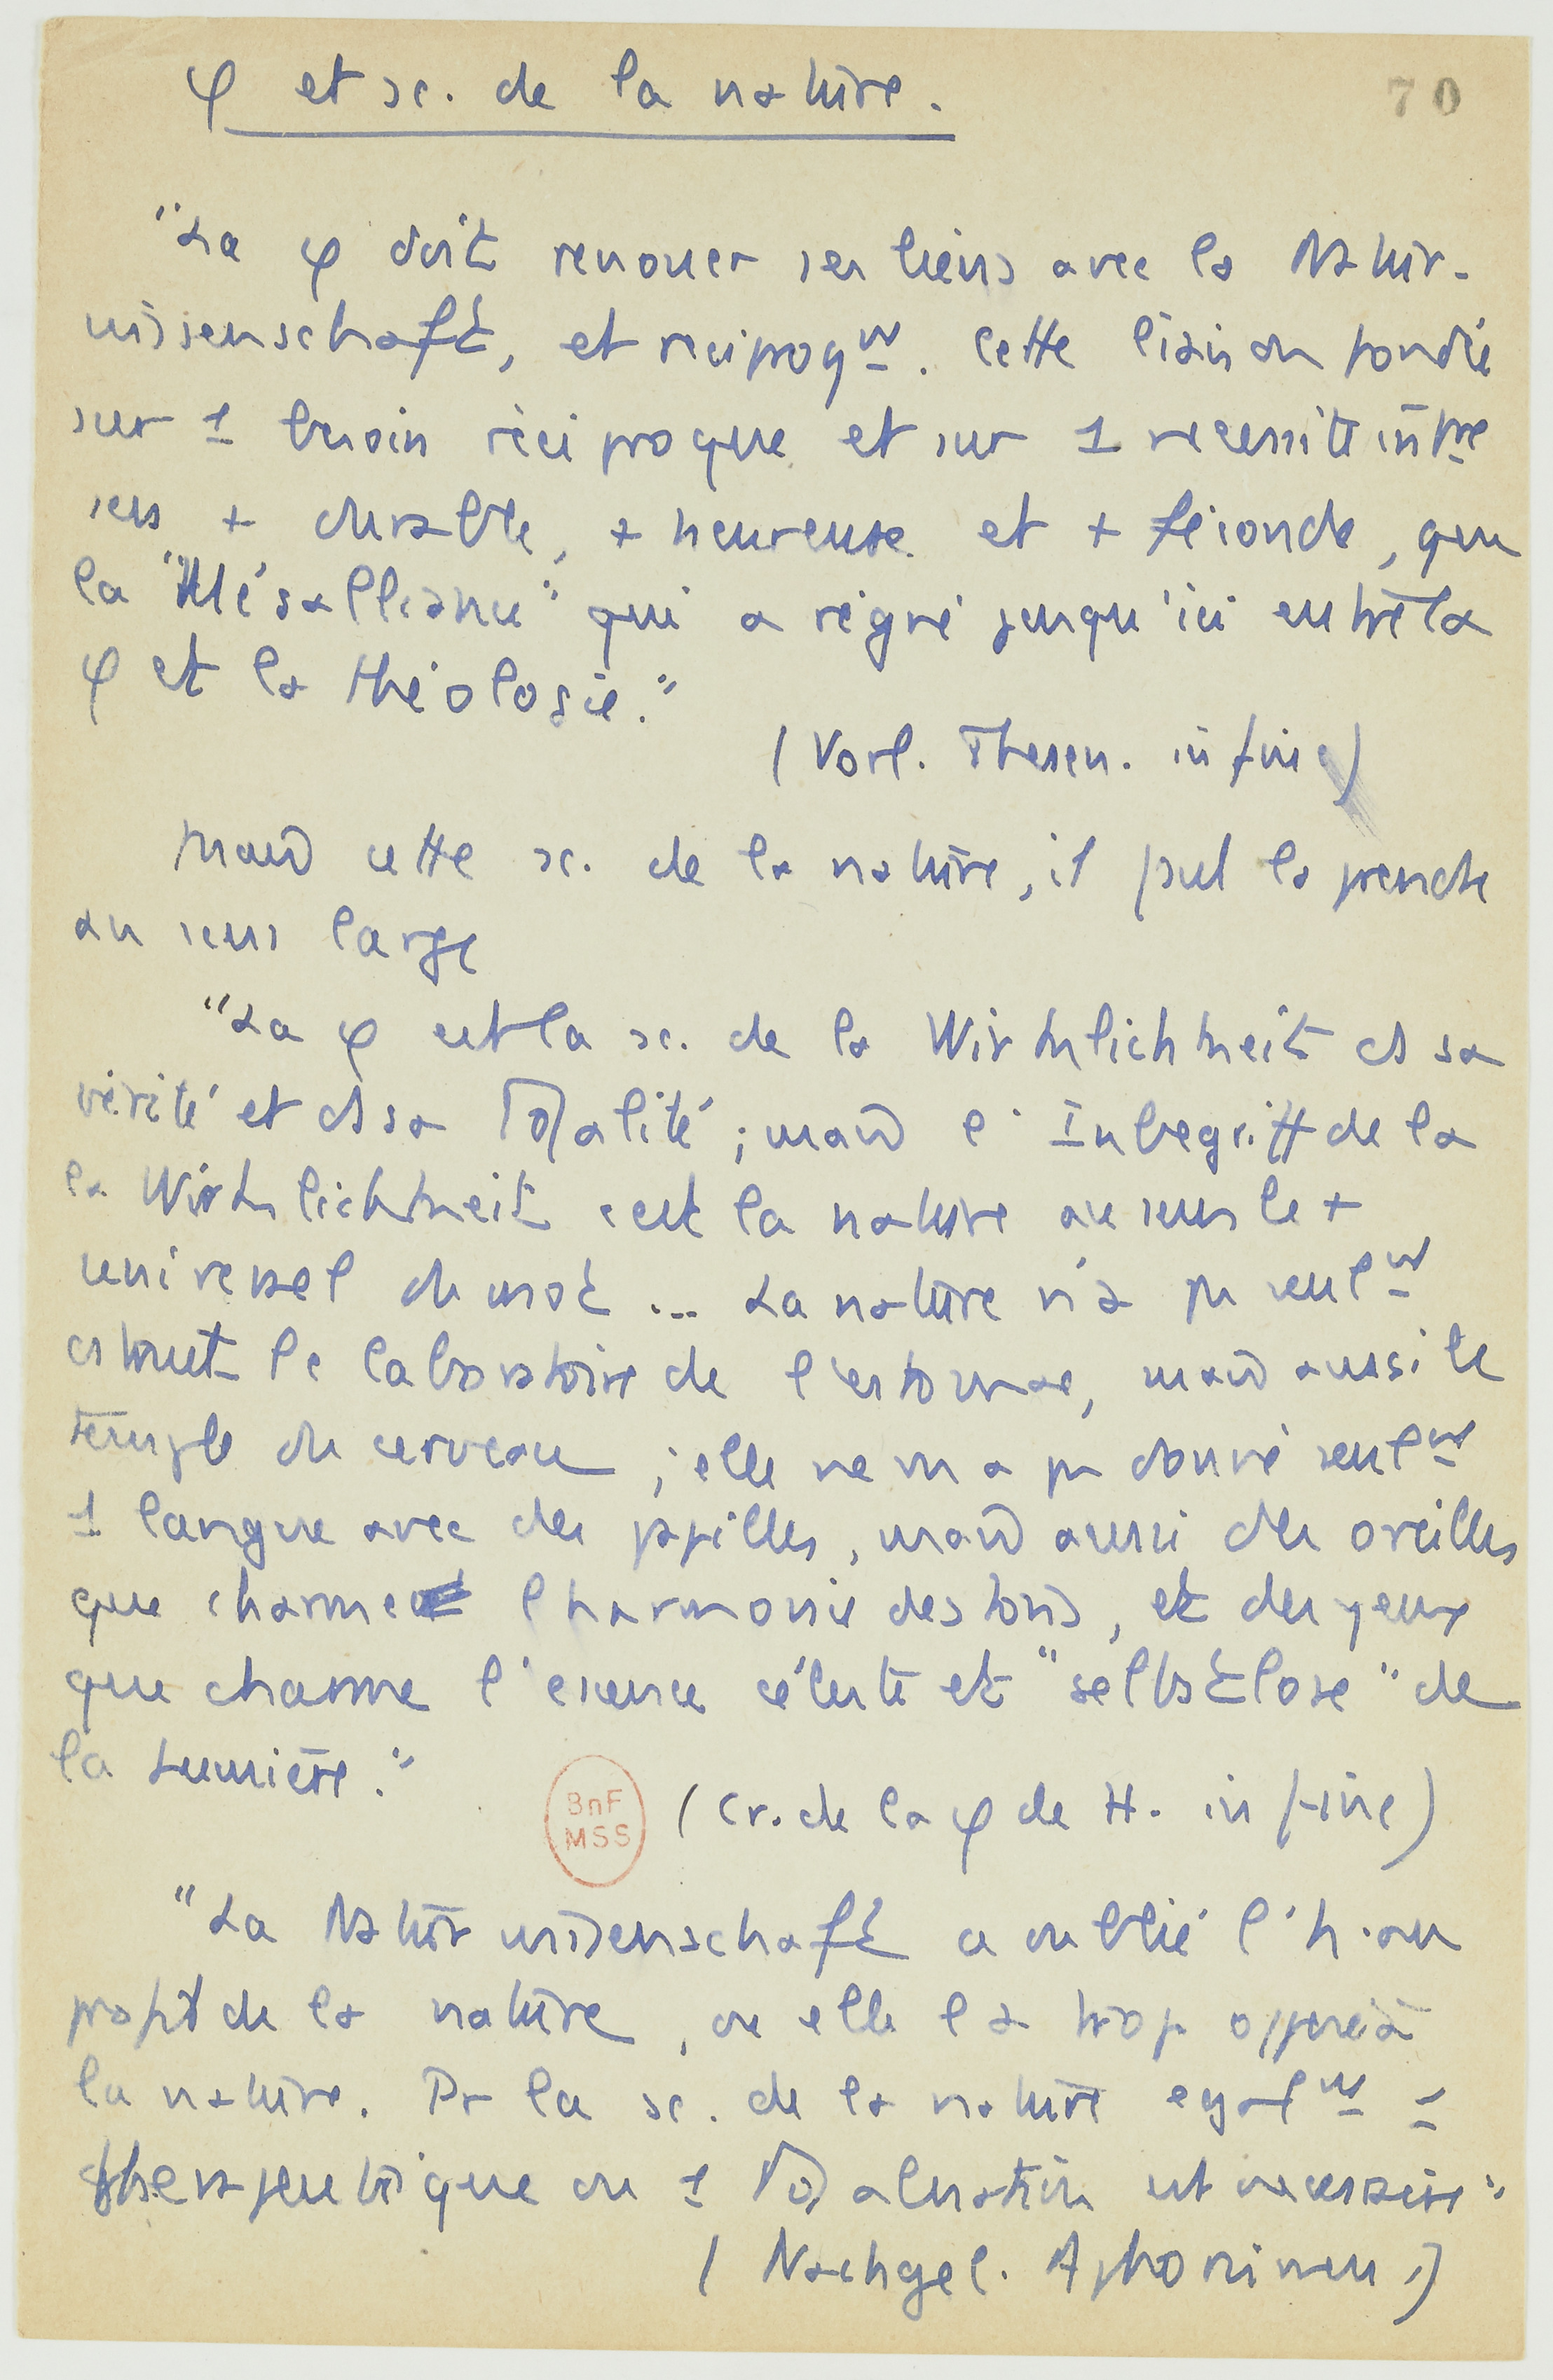 φ et sc. de la nature.
70
"La φ doit renouer ses liens avec la Natur-
wissenschaft, et réciproqᵗ. Cette liaison fondée
sur 1 besoin réciproque et sur 1 nécessité
sera + durable, + heureuse et + féconde, que
la "Mésalliance" qui a régné jusqu'ici entre la
φ et la théologie."
(Vorl. Thesen. in fine)
Mais cette sc. de la nature, il faut la prendre
au sens large
"La φ est la sc. de la Wirklichkeit ds sa
vérité et ds sa totalité ; mais l'Inbegriff de la
la Wirklichkeit c'est la nature au sens le +
universel du mot ... La nature n'a pas seulᵗ
construit le laboratoire de l'estomac, mais aussi le
temple du cerveau ; elle ne ns a pas donné seulᵗ
1 langue avec des papilles, mais aussi des oreilles
que charme l'harmonie des sons, et des yeux
que charme l'essence céleste et "selbstlose" de
la Lumière."
BnF
MSS
(Cr. de la φ de H. in fine)
"La Naturwissenschaft a oublié l'h. au
profit de la nature, ou elle l'a trop opposé à
la nature. Pr la sc. de la nature égalᵗ 1
thérapeutique ou 1 est nécessaire"
(Nachgel. Aphorismen.)